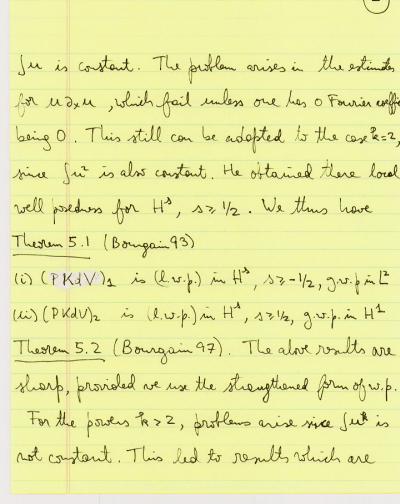 ∫u is constant. The problem arises in the estimates
for u∂ₓu, which fail unless one has 0 Fourier coeffi
being 0. This still can be adapted to the case k=2,
since ∫u² is also constant. He obtained there local
well posedness for Hˢ, s≥1/2. We thus have
Theorem 5.1 (Bourgain 93)
(i) (PKdV)₁ is (l.w.p.) in Hˢ, s≥-1/2, g.w.p in L²
(ii) (PKdV)₂ is (l.w.p.) in Hˢ, s≥1/2, g.w.p. in H¹
Theorem 5.2 (Bourgain 97). The above results are
sharp, provided we use the strengthened form of w.p.
For the powers k>2, problems arise since ∫uᵏ is
not constant. This led to results which are